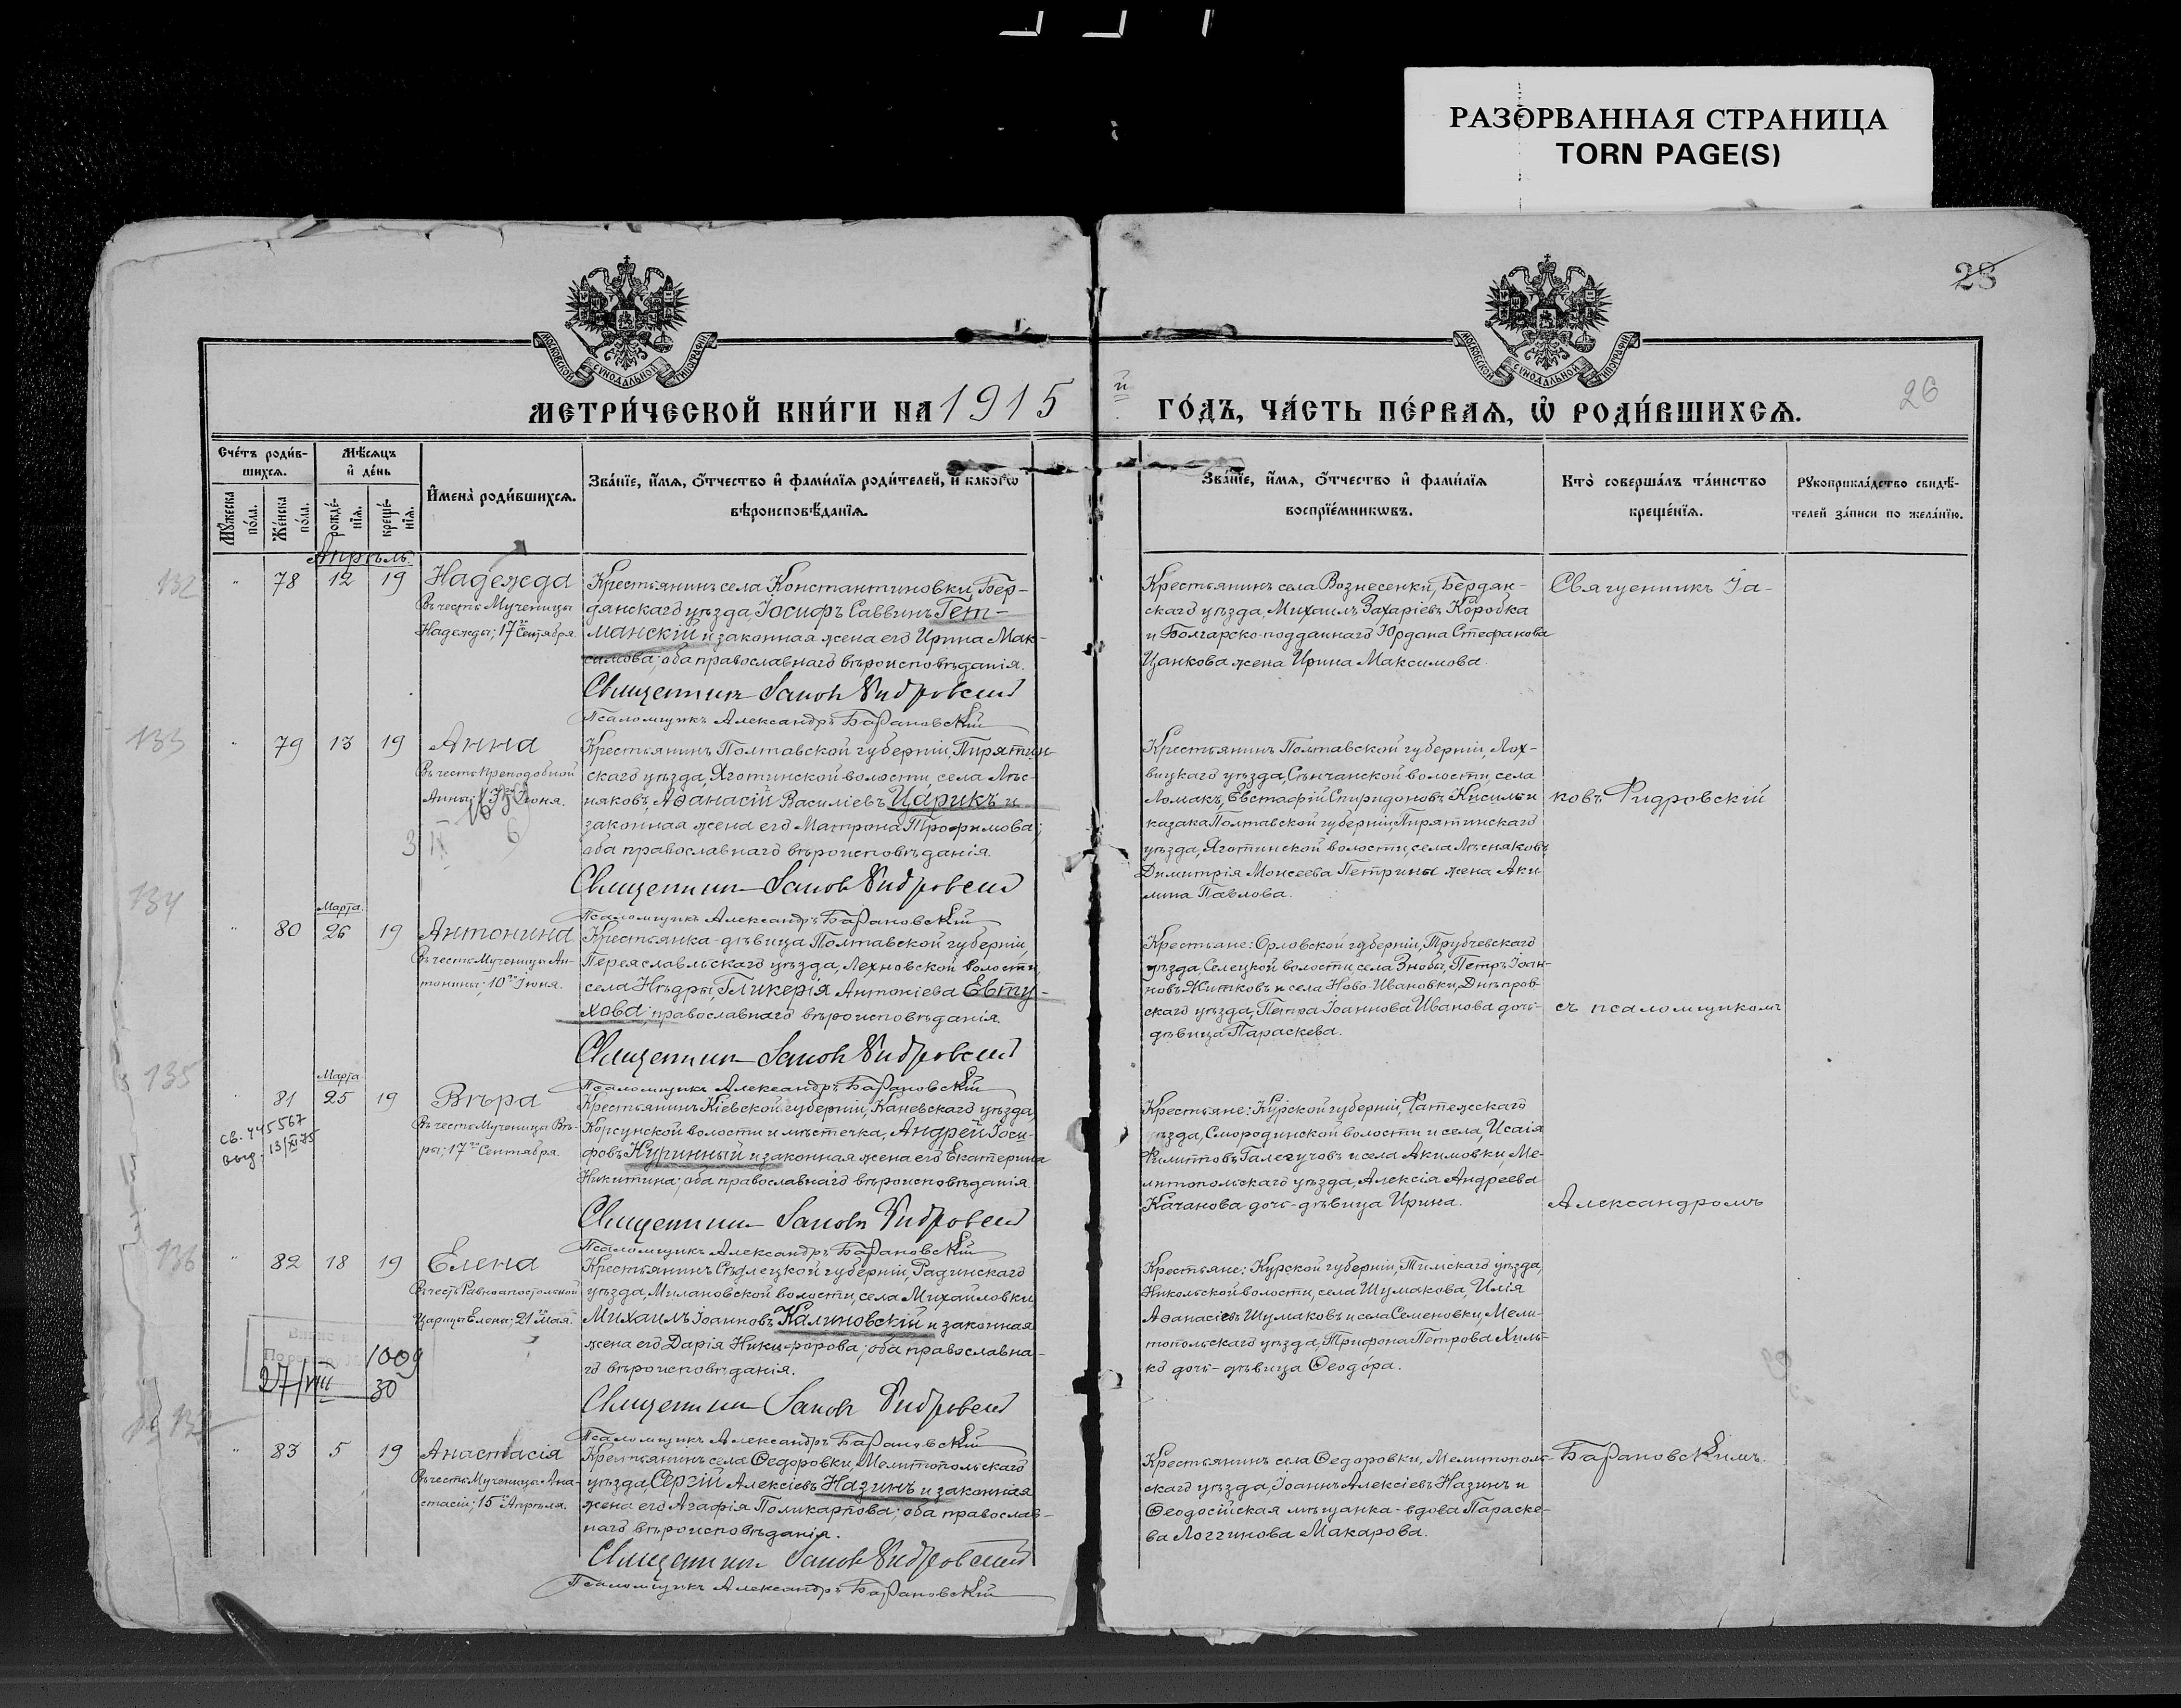 РАЗОРВАННАЯ СТРАНИЦА
TORN PAGE(S)
МОСКОВСКОЙ СУНОДАЛЬНОЙ ТИПОГРАФІИ
МОСКОВСКОЙ СУНОДАЛЬНОЙ ТИПОГРАФІИ
28
26
МЕТРИ́ЧЕСКОЙ КНИ́ГИ НА 1915 й ГО́ДЪ, ЧА́СТЬ ПЕ́РВАЯ, Ѡ РОДИ́ВШИХСЯ.
Сче́тъ роди́в-
шихся.
Мѣ́сяцъ
и де́нь
Му́жеска по́ла.
Же́нска по́ла.
рожде́-
нїя.
креще́-
нїя.
Имена̀ роди́вшихся.
Зва́нїе, и́мя, о́тчество и фами́лїя роди́телей, и како́гѡ
вѣроисповѣ́данїя.
Зва́нїе, и́мя, о́тчество и фами́лїя
воспрїе́мникѡвъ.
Кто̀ соверша́лъ та́инство
креще́нїя.
Рукоприкла́дство свидѣ́-
телей за́писи по жела́нїю.
Апрѣль.
132
" 78 12 19
Надежда
Въ честь Мученицы
Надежды; 17го Сентября.
Крестьянинъ села Константиновки, Бер-
дянскаго уѣзда, Іосифъ Саввинъ Гет-
манскій и законная жена его Ирина Мак-
симова; оба православнаго вѣроисповѣданія.
Священникъ Іаковъ Фидровскій
Псаломщикъ Александръ Барановскій
Крестьянинъ села Вознесенки, Бердян-
скаго уѣзда, Михаилъ Захаріевъ Коробка
и Болгарско-подданнаго Юрдана Стефанова
Цанкова жена Ирина Максимова.
Священникъ Іа-
133
" 79 13 19
Анна
Въ честь Преподобной
Анны; Іюня.
Крестьянинъ Полтавской губерніи, Пирятин-
скаго уѣзда, Яготинской волости, села Лѣс-
няковъ, Аѳанасій Василіевъ Царикъ и
законная жена его Матрона Трофимова;
оба православнаго вѣроисповѣданія.
Священникъ Іаковъ Фидровскій
Псаломщикъ Александръ Барановскій
Крестьянинъ Полтавской губерніи, Лох-
вицкаго уѣзда, Сѣнчанской волости, села
Ломакъ, Евстафій Спиридоновъ Кисиль и
казака Полтавской губерніи, Пирятинскаго
уѣзда, Яготинской волости, села Лѣсняковъ,
Димитрія Моисеева Петрины жена Аки-
лина Павлова.
ковъ Фидровскій
134
Марта.
" 80 26 19
Антонина
Въ честь Мученицы Ан-
тонины; 10го Іюня.
Крестьянка-дѣвица Полтавской губерніи,
Переяславльскаго уѣзда, Лехновской волости,
села Нѣдры, Гликерія Антоніева Евту-
хова; православнаго вѣроисповѣданія.
Священникъ Іаковъ Фидровскій
Псаломщикъ Александръ Барановскій
Крестьяне: Орловской губерніи, Трубчевскаго
уѣзда, Селецкой волости, села Знобы, Петръ Іоан-
новъ Житковъ и села Ново-Ивановки, Днѣпров-
скаго уѣзда, Петра Іоаннова Иванова дочь-
дѣвица Параскева.
съ псаломщикомъ
135
Марта
" 81 25 19
св. 445567
выд. 13/XI 75
Вѣра
Въ честь Мученицы Вѣ-
ры; 17го Сентября.
Крестьянинъ Кіевской губерніи, Каневскаго уѣзда,
Корсунской волости и мѣстечка, Андрей Іоси-
фовъ Куринный и законная жена его Екатерина
Никитина; оба православнаго вѣроисповѣданія.
Священникъ Іаковъ Фидровскій
Псаломщикъ Александръ Барановскій
Крестьяне: Курской губерніи, Фатежскаго
уѣзда, Смородинской волости и села, Исаія
Филипповъ Галегучовъ и села Акимовки, Ме-
литопольскаго уѣзда, Алексія Андреева
Качанова дочь-дѣвица Ирина.
Александромъ
136
" 82 18 19
Елена
Въ честь Равноапостольной
Царицы Елены; 21го Мая.
1009
27/VIII 30
Крестьянинъ Сѣдлецкой губерніи, Радинскаго
уѣзда, Милановской волости, села Михайловки,
Михаилъ Іоанновъ Калиновскій и законная
жена его Дарія Никифорова; оба православна-
го вѣроисповѣданія.
Священникъ Іаковъ Фидровскій
Псаломщикъ Александръ Барановскій
Крестьяне: Курской губерніи, Тимскаго уѣзда,
Никольской волости, села Шумакова, Илія
Аѳанасіевъ Шумаковъ и села Семеновки, Мели-
топольскаго уѣзда, Трифона Петрова Хиль-
ко дочь-дѣвица Ѳеодора.
" 83 5 19
Анастасія
Въ честь Мученицы Ана-
стасіи; 15го Апрѣля.
Крестьянинъ села Ѳедоровки, Мелитопольскаго
уѣзда, Сергій Алексіевъ Назинъ и законная
жена его Агафія Поликарпова; оба православ-
наго вѣроисповѣданія.
Священникъ Іаковъ Фидровскій
Псаломщикъ Александръ Барановскій
Крестьянинъ села Ѳедоровки, Мелитополь-
скаго уѣзда, Іоаннъ Алексіевъ Назинъ и
Ѳеодосійская мѣщанка-вдова Параске-
ва Логгинова Макарова.
Барановскимъ.